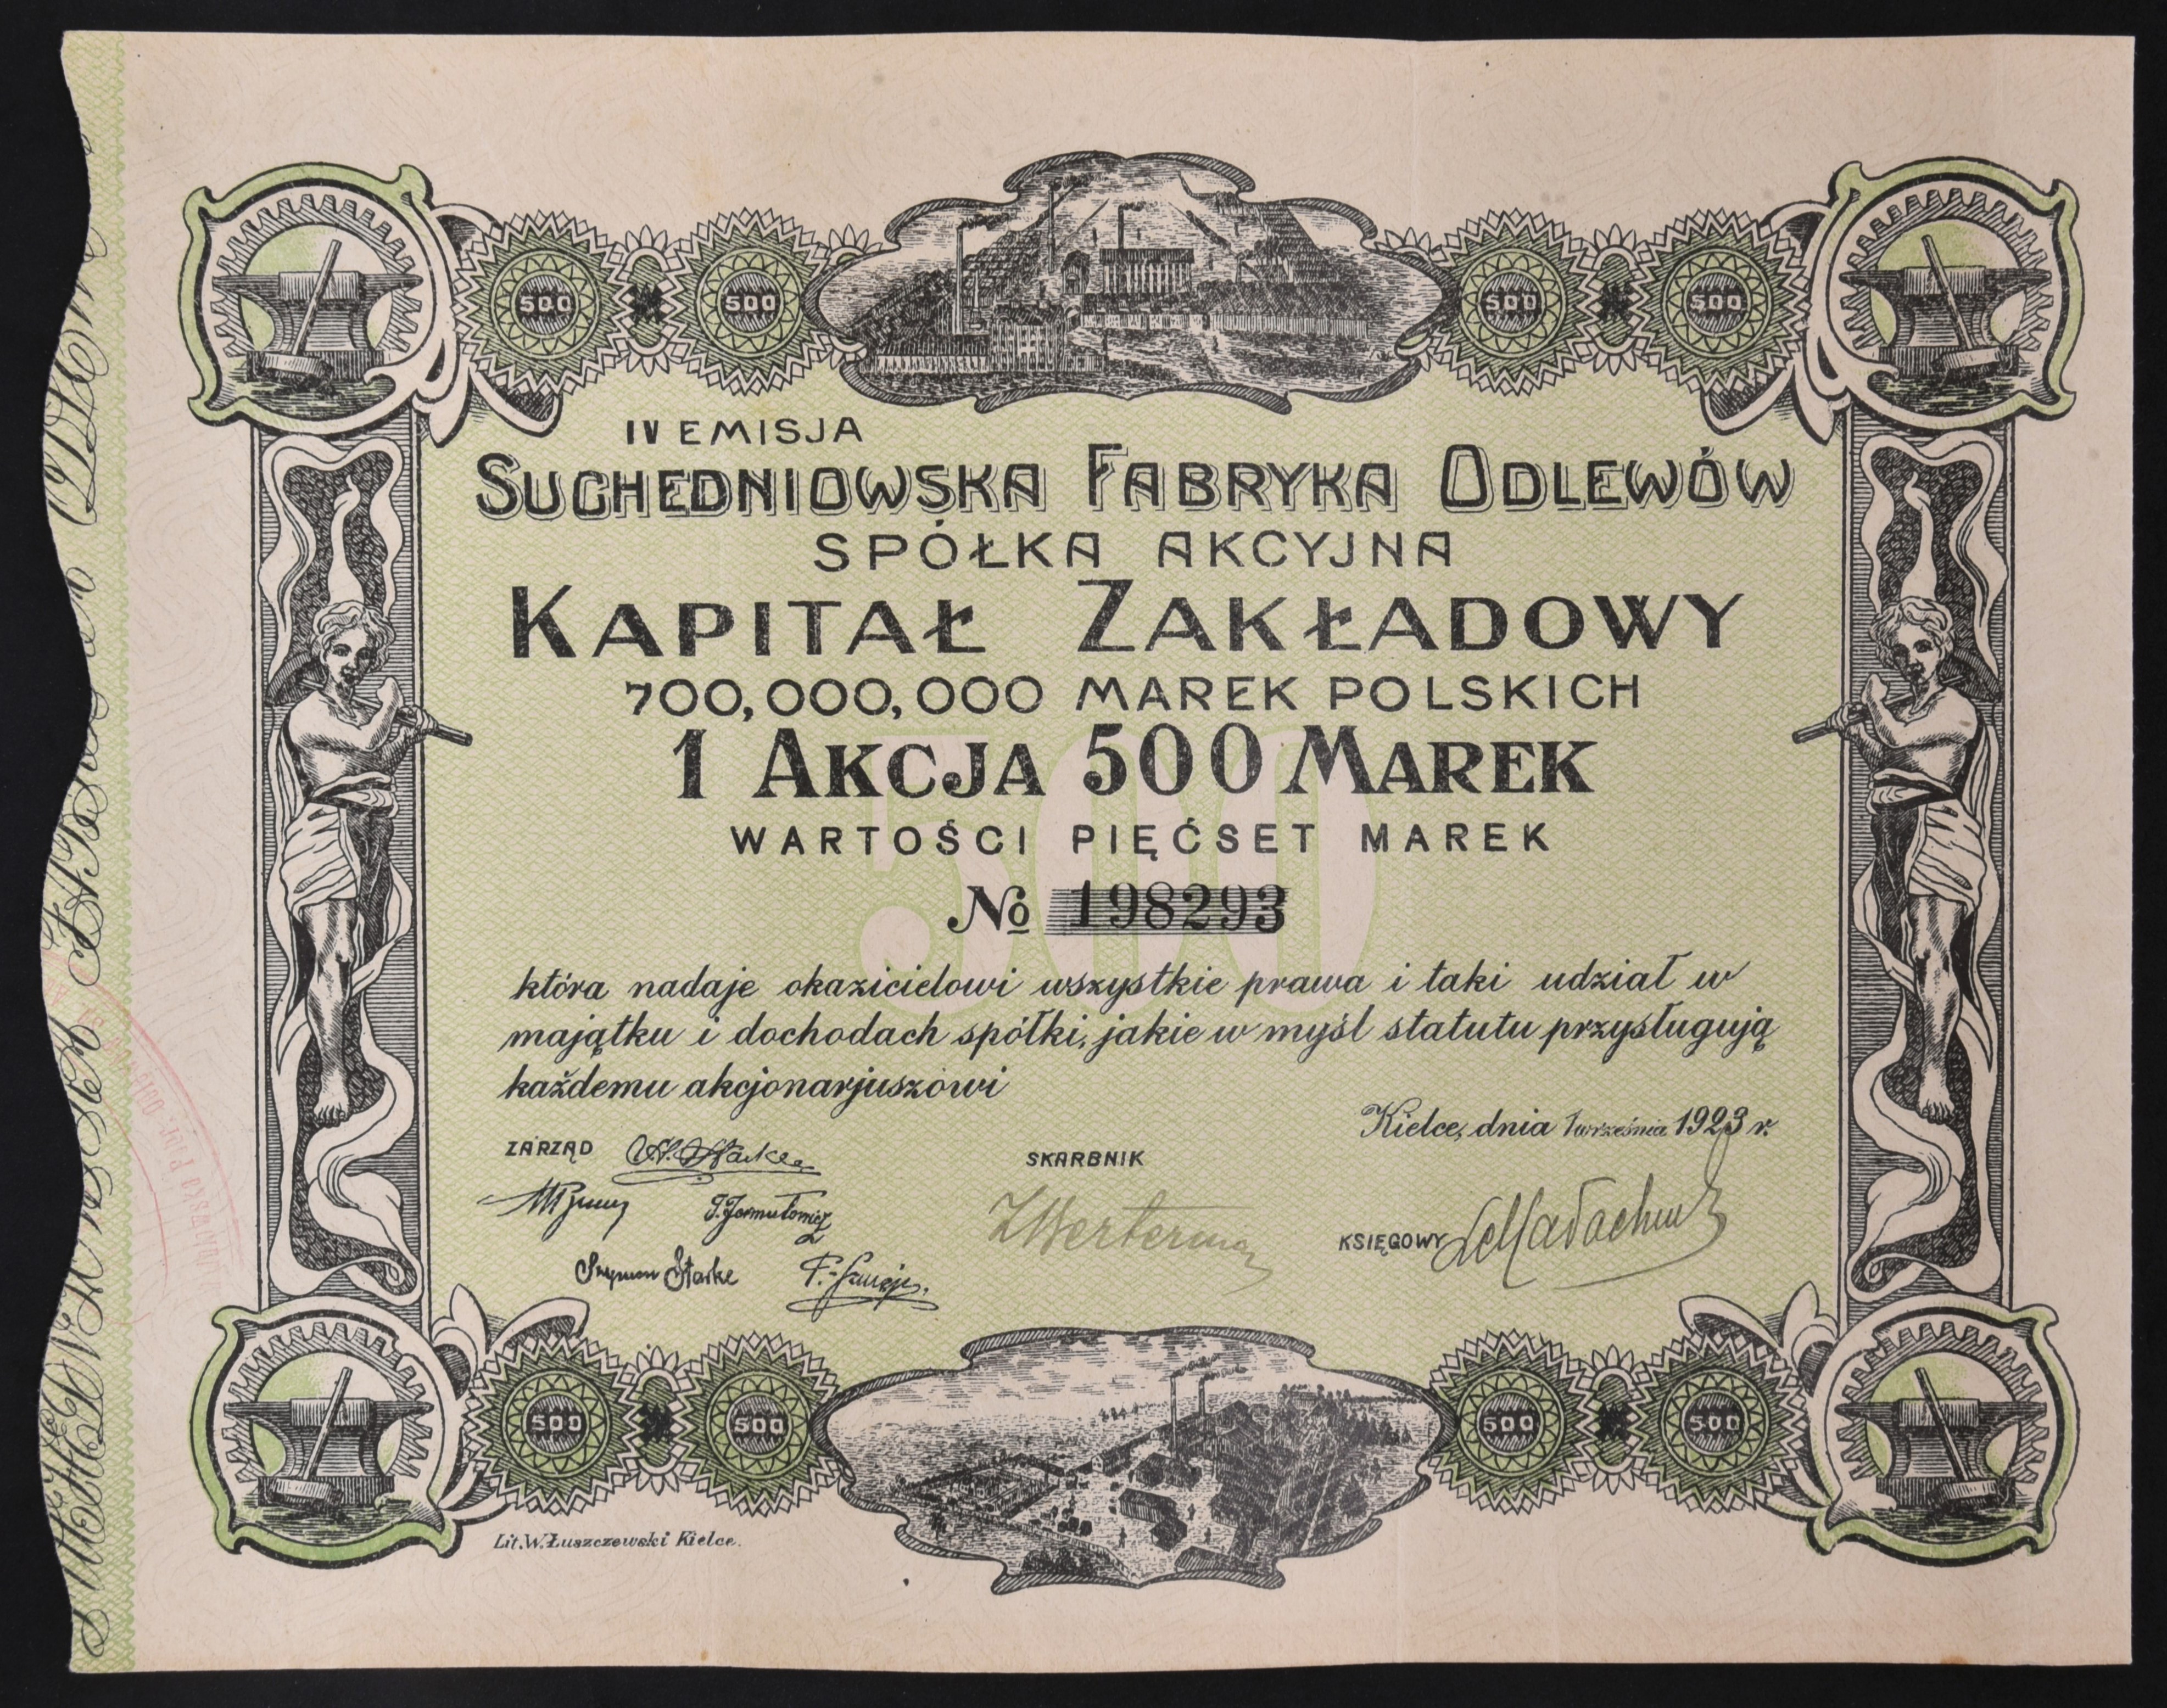 500 500 500 500
IV EMISJA
SUCHEDNIOWSKA FABRYKA ODLEWÓW
SPÓŁKA AKCYJNA
KAPITAŁ ZAKŁADOWY
700,000,000 MAREK POLSKICH
1 AKCJA 500 MAREK
WARTOŚCI PIĘĆSET MAREK
500
No 198293
która nadaje okazicielowi wszystkie prawa i taki udział w
majątku i dochodach spółki, jakie w myśl statutu przysługują
każdemu akcjonarjuszowi
Kielce, dnia 1 września 1923 r.
ZARZĄD
SKARBNIK
Szymon Starke
KSIĘGOWY
500 500 500 500
Lit. W. Łuszczewski Kielce.